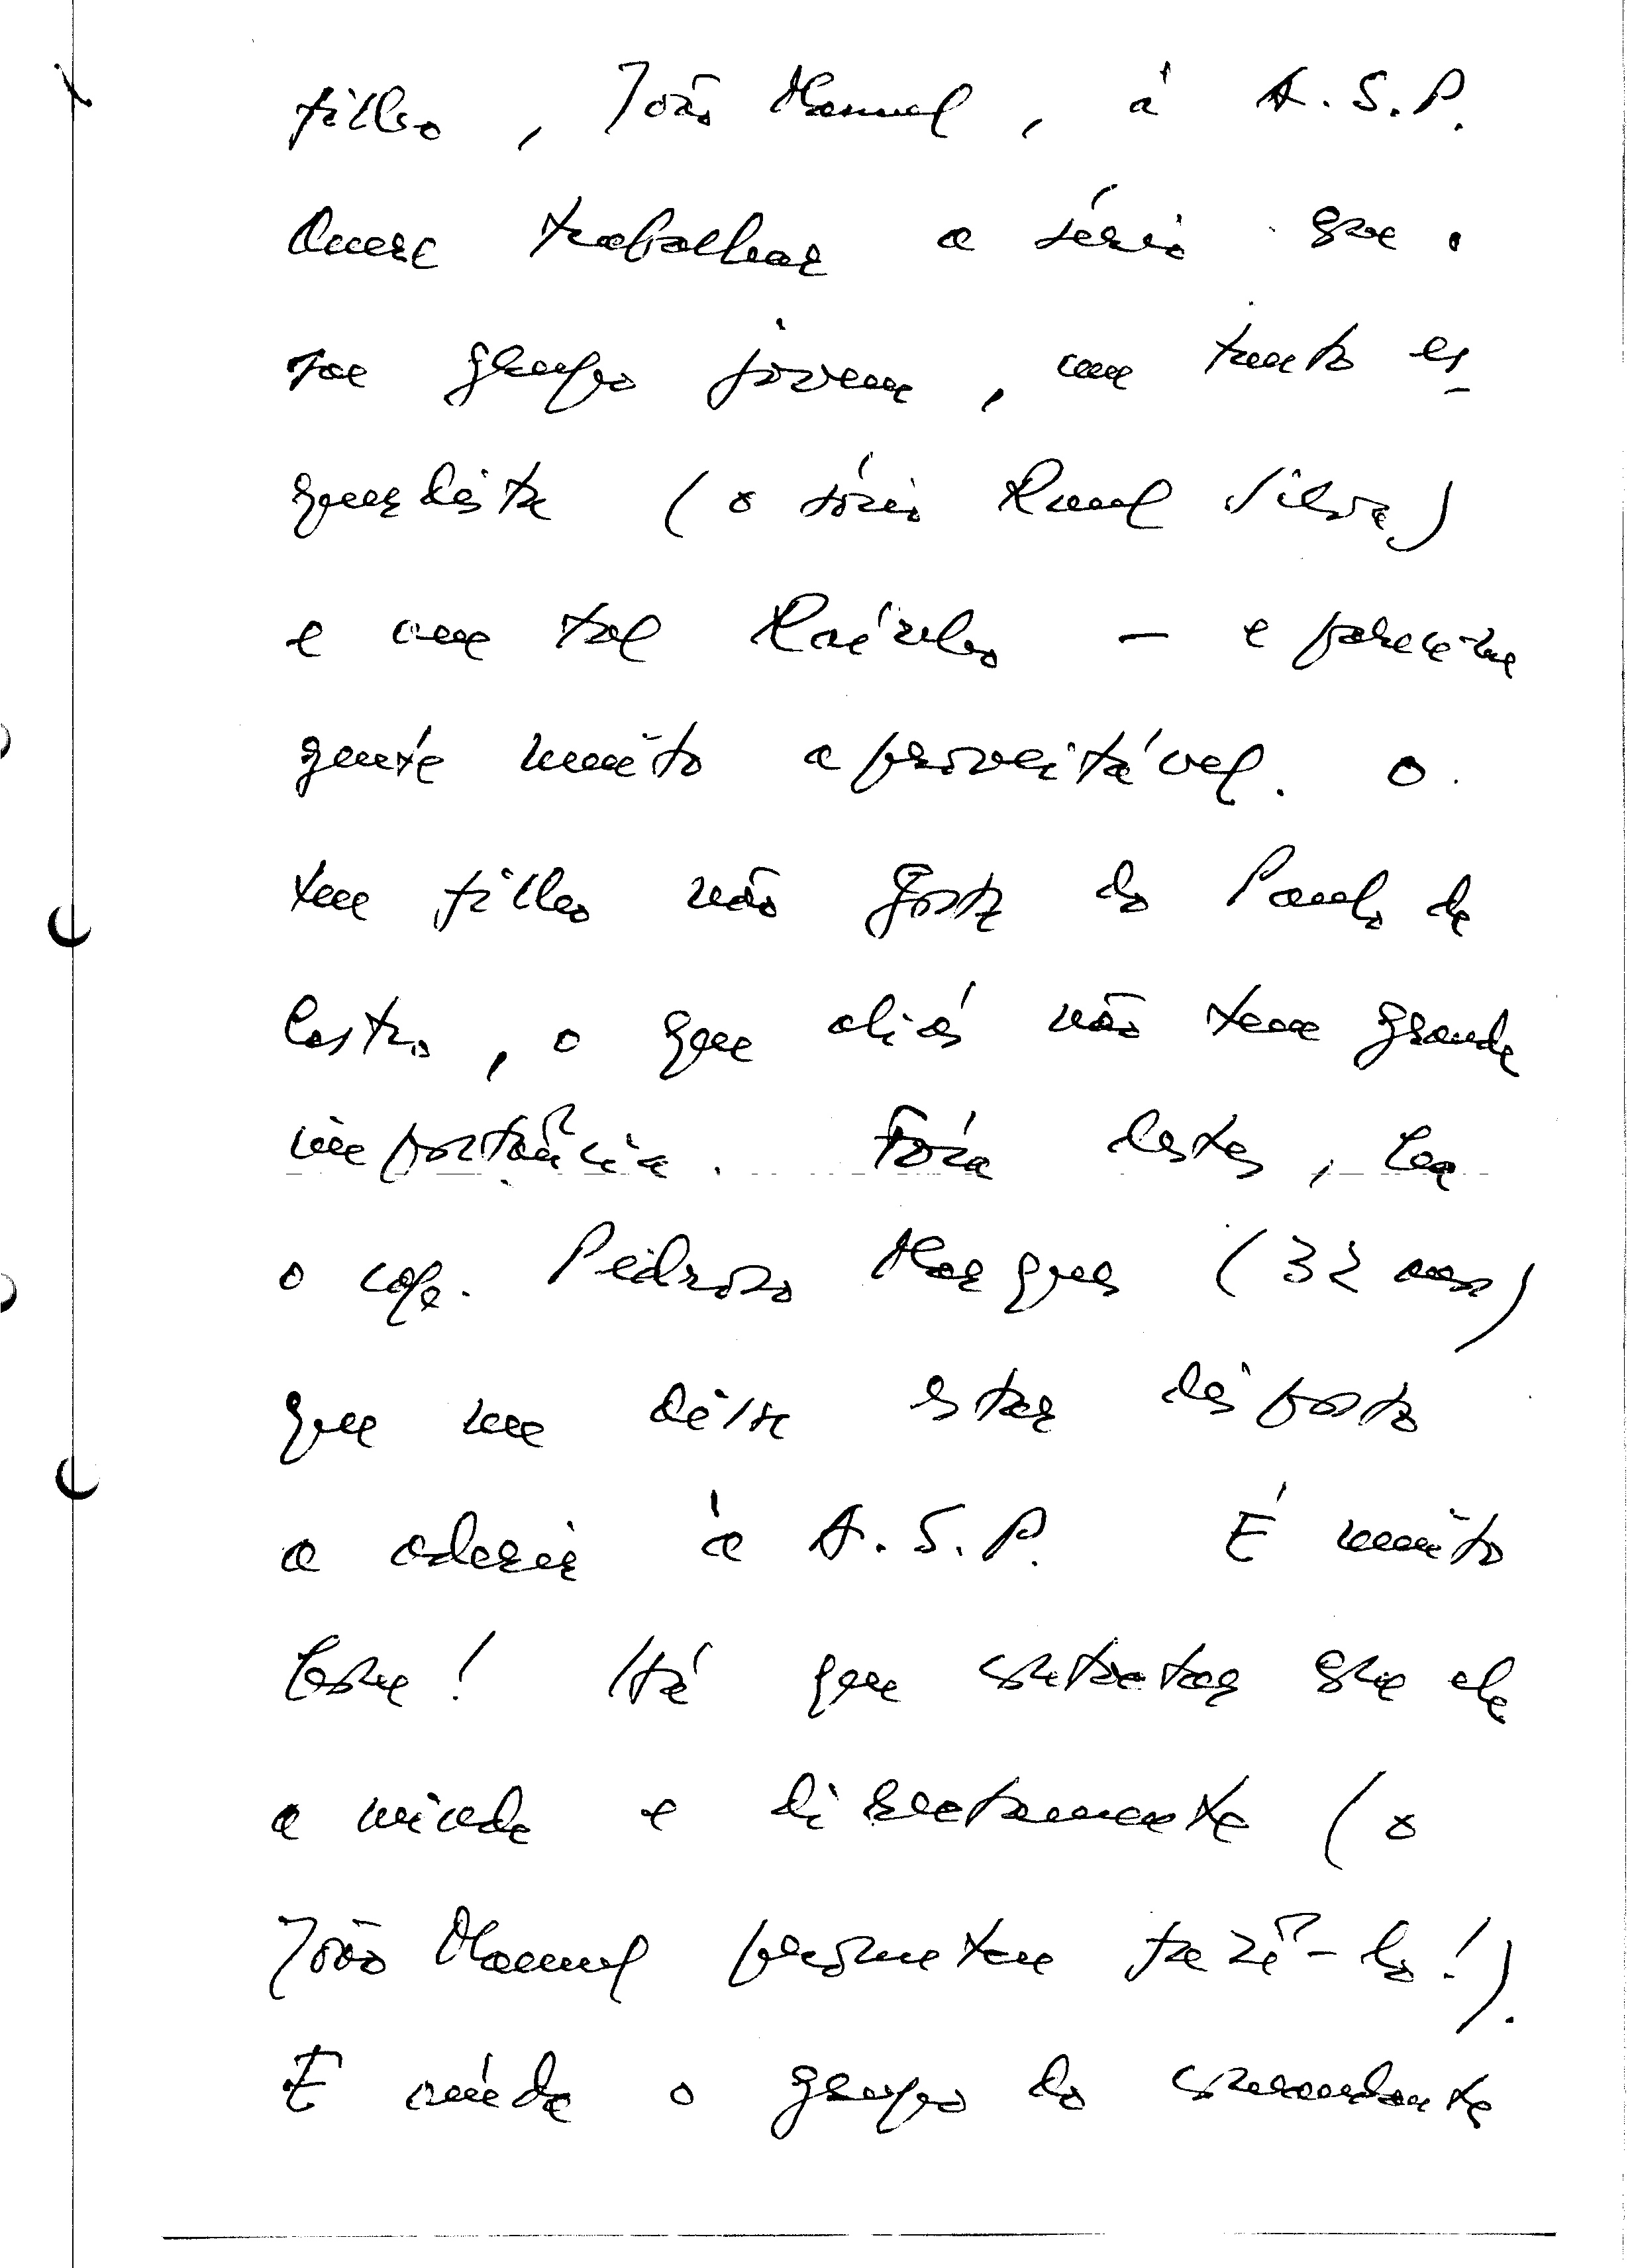 filho, João Manuel, à A.S.P.
Quere trabalhar a sério que o
seu grupo jovem, um tanto es-
querdista (o sócio Raul Silva)
e um tal — e parece-me
gente muito aproveitável. O
teu filho não gosta do Paulo de
Castro, o que aliás não tem grande
importância. Fóra destes, há
o cap. Pedroso Marques (32 anos)
que me disse estar disposto
a aderir à A.S.P. É muito
bom! Há que contactar com ele
ainda e directamente (o
João Manuel prometeu fazê-lo!).
E ainda o grupo do comandante